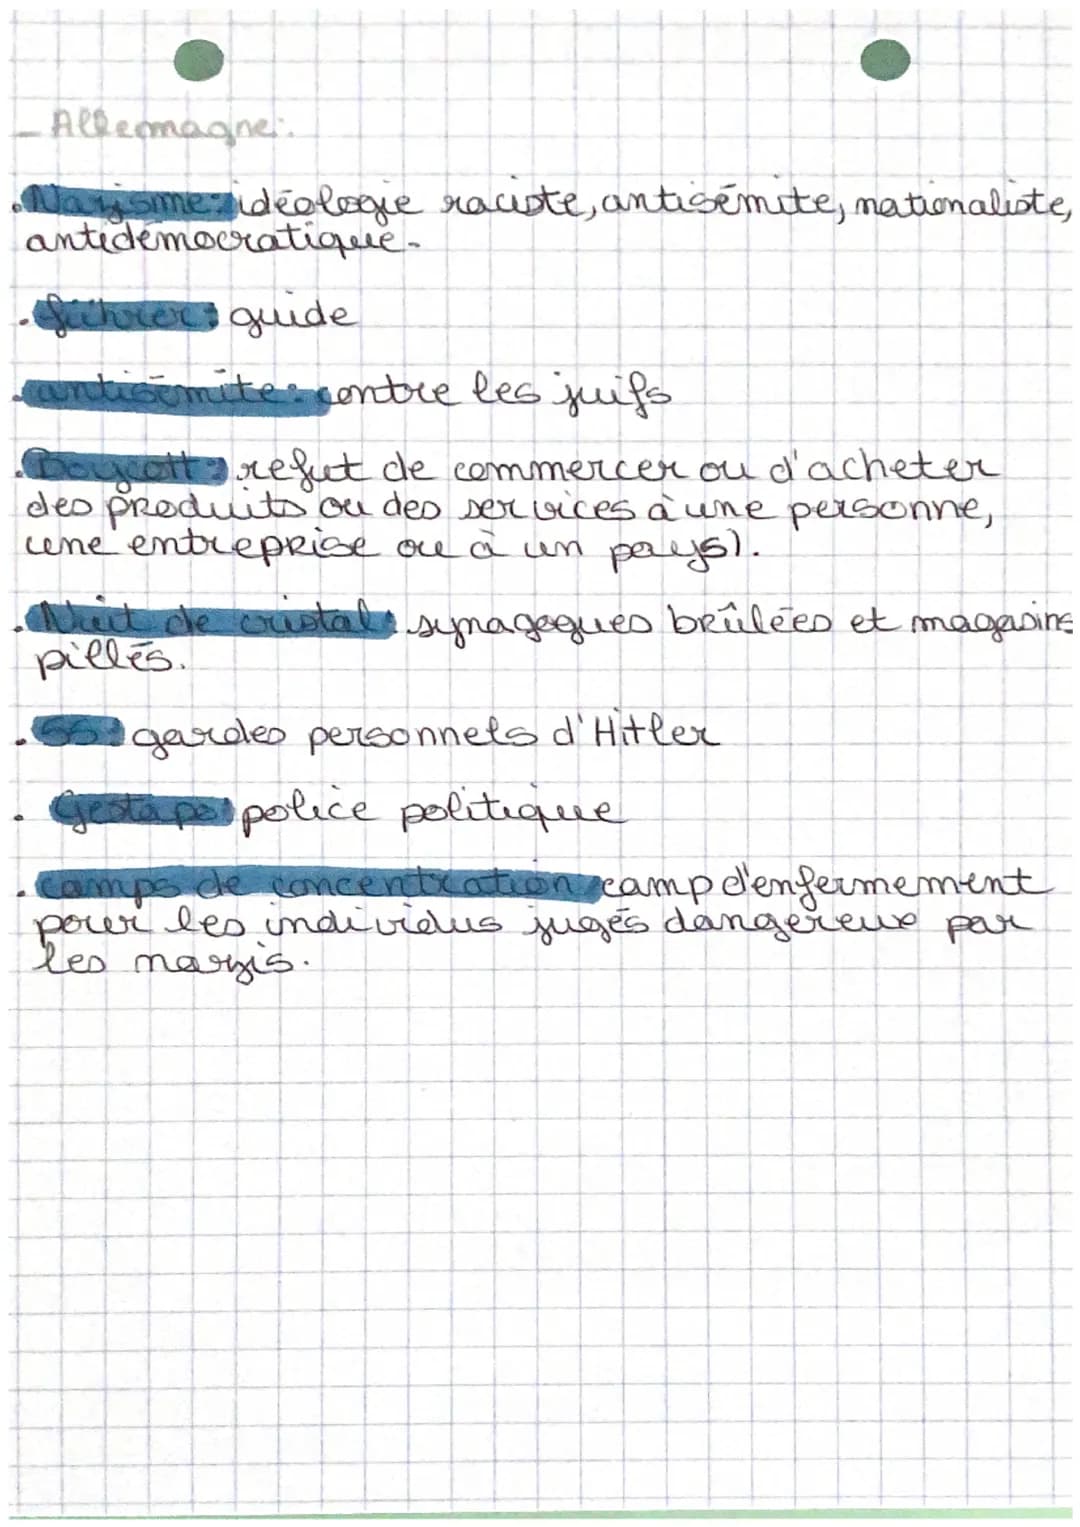 - Allemagne:
.Nazisme: idéologie raciste, antisémite, nationaliste,
antidémocratique.
.führer: guide
.antisémite: contre les juifs
.Boycott: refut de commercer ou d'acheter
des produits ou des services à une personne,
une entreprise ou à un pays).
.Nuit de cristal: synagogues brûlées et magasins
pillés.
.SS: gardes personnels d'Hitler
. Gestapo: police politique
.camps de concentration camp d'enfermement
pour les individus jugés dangereux par
les nazis.